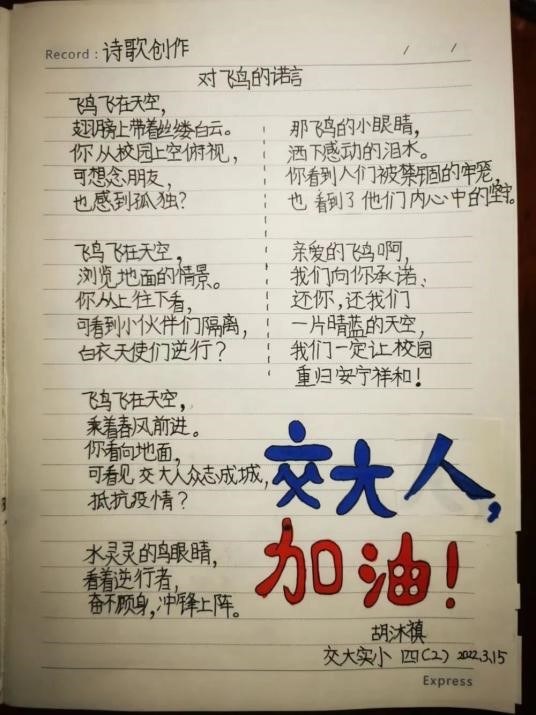 Record: 诗歌创作
/ /
对飞鸟的诺言
飞鸟飞在天空,
翅膀上带着丝缕白云。
你从校园上空俯视,
可想念朋友,
也感到孤独?
飞鸟飞在天空,
浏览地面的情景。
你从上往下看,
可看到小伙伴们隔离,
白衣天使们逆行?
飞鸟飞在天空,
乘着春风前进。
你看向地面,
可看见交大人众志成城,
抵抗疫情?
水灵灵的鸟眼睛,
看着逆行者,
奋不顾身,冲锋上阵。
那飞鸟的小眼睛,
洒下感动的泪水。
你看到人们被禁锢的牢笼,
也看到了他们内心中的坚牢。
亲爱的飞鸟啊,
我们向你承诺、
还你,还我们
一片晴蓝的天空,
我们一定让校园
重归安宁祥和!
交大人,
加油!
胡沐禛
交大实小 四(2) 2022.3.15
Express